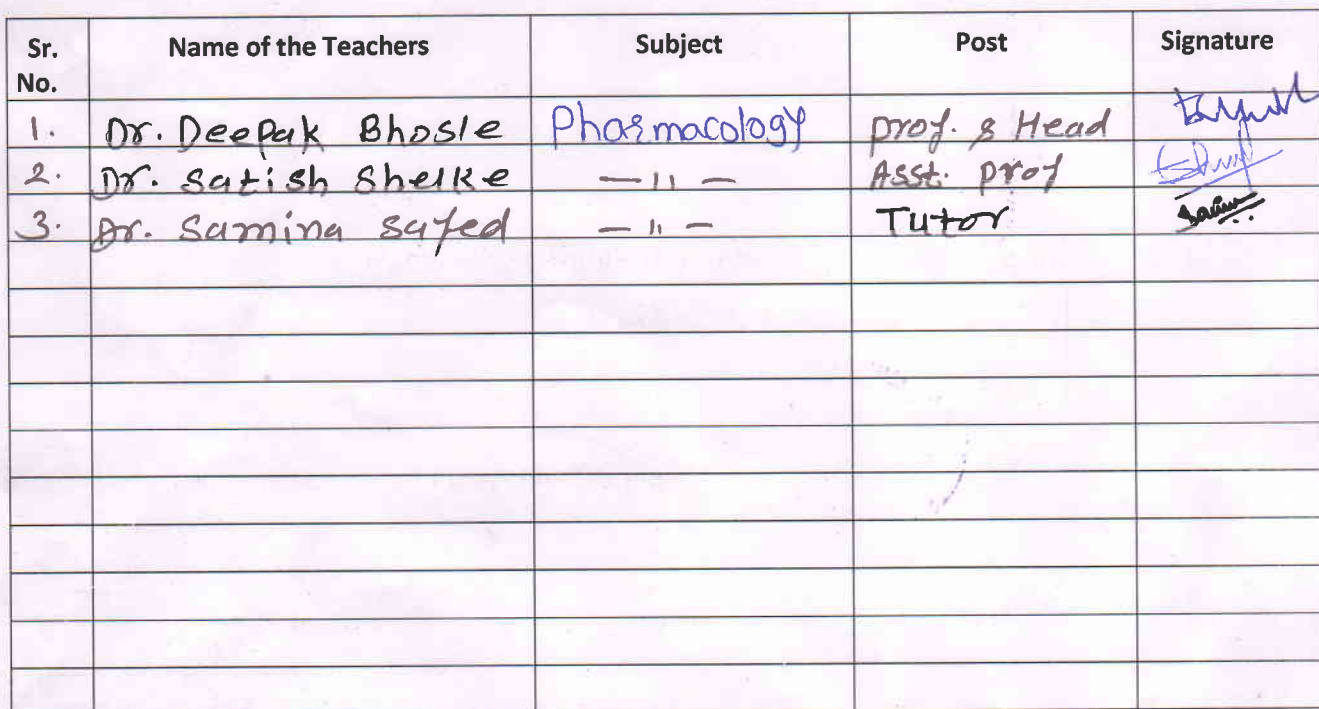 Sr. No. Name of the Teachers Subject Post Signature
1. Dr. Deepak Bhosle Pharmacology prof. & Head
2. Dr. Satish Shelke —11— Asst. prof
3. Dr. Samina Sayed —11— Tutor